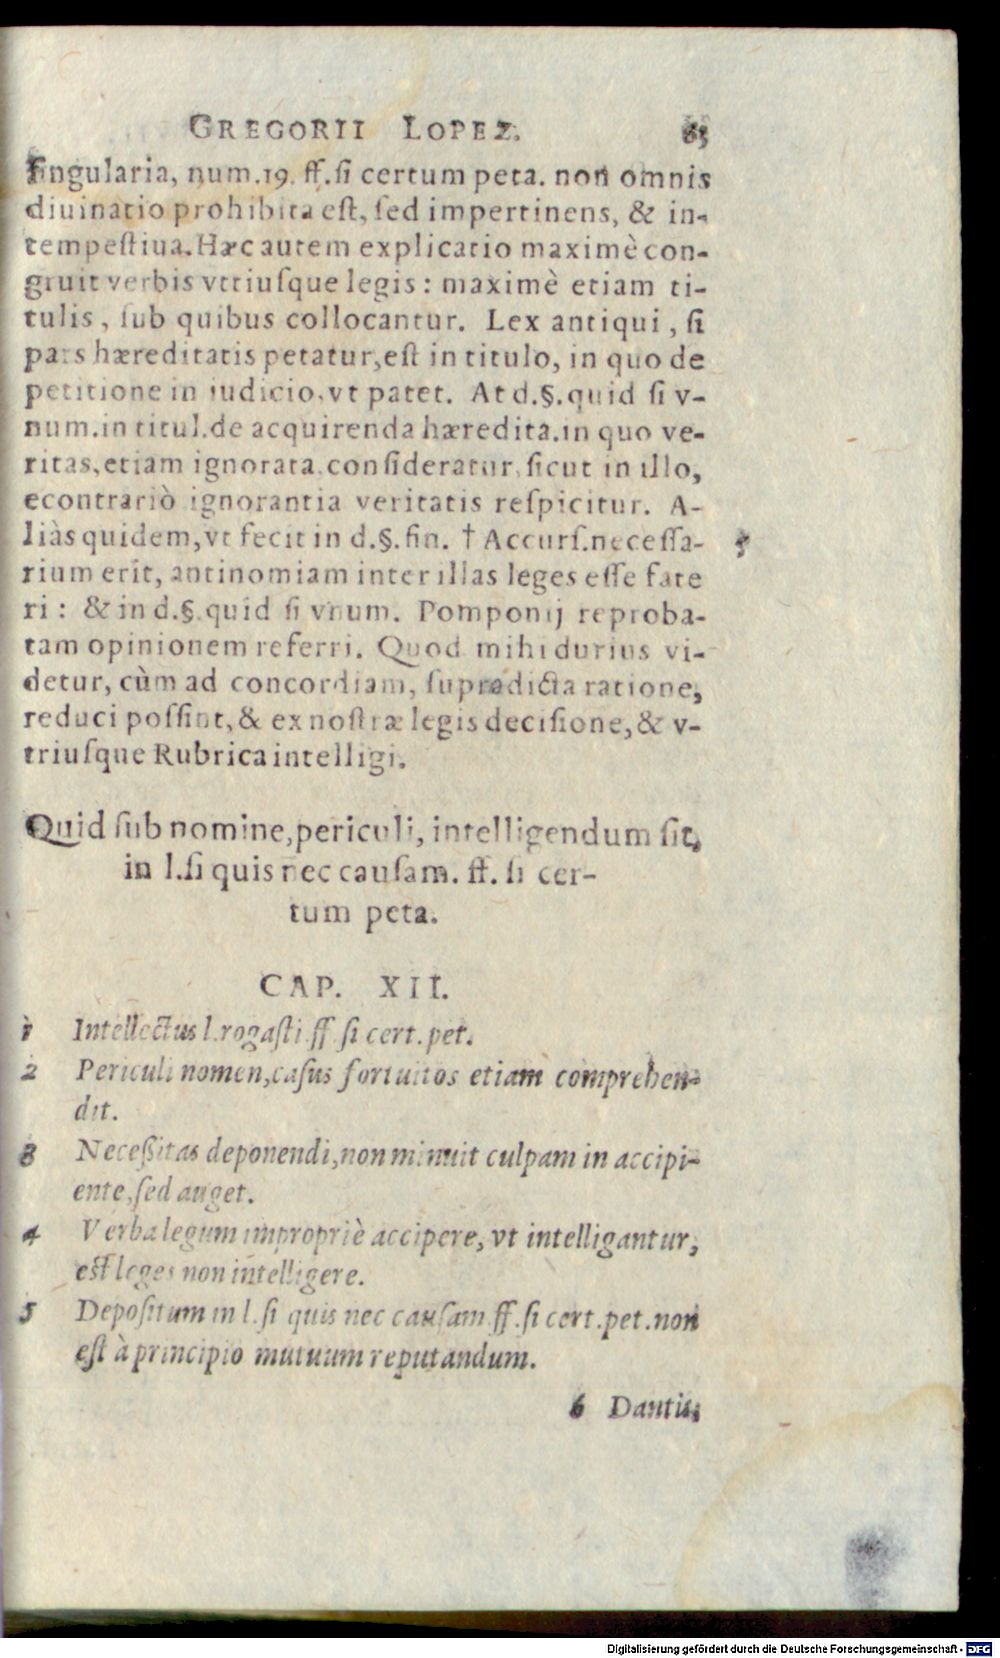 GREGORII LOPEZ. 85
ſingularia, num.19. ff.ſi certum peta. non omnis
diuinatio prohibita eſt, ſed impertinens, & in-
tempeſtiua.Hæc autem explicatio maximè con-
gruit verbis vtriuſque legis : maximè etiam ti-
tulis, ſub quibus collocantur. Lex antiqui, ſi
pars hæreditatis petatur,eſt in titulo, in quo de
petitione in iudicio,vt patet. At d.§.quid ſi v-
num.in titul.de acquirenda hæredita.in quo ve-
ritas,etiam ignorata,conſideratur,ſicut in illo,
econtrariò ignorantia veritatis reſpicitur. A-
liàs quidem,vt fecit in d.§.fin. † Accurſ.neceſſa-
rium erit, antinomiam inter illas leges eſſe fate
ri : & in d.§.quid ſi vnum. Pomponij reproba-
tam opinionem referri. Quod mihi durius vi-
detur, cùm ad concordiam, ſupradicta ratione,
reduci poſſint,& ex noſtræ legis deciſione,& v-
triuſque Rubrica intelligi.
Quid ſub nomine,periculi, intelligendum ſit,
in l.ſi quis nec cauſam. ff. ſi cer-
tum peta.
CAP. XII.
1 Intellectus l.rogaſti.ff.ſi cert.pet.
2 Periculi nomen,caſus fortuitos etiam comprehen-
dit.
3 Neceßitas deponendi,non minuit culpam in accipi-
ente,ſed auget.
4 Verba legum impropriè accipere, vt intelligantur,
eſt leges non intelligere.
5 Depoſitum in l.ſi quis nec cauſam.ff.ſi cert.pet.non
eſt à principio mutuum reputandum.
6 Dantis,
Digitalisierung gefördert durch die Deutsche Forschungsgemeinschaft - DFG